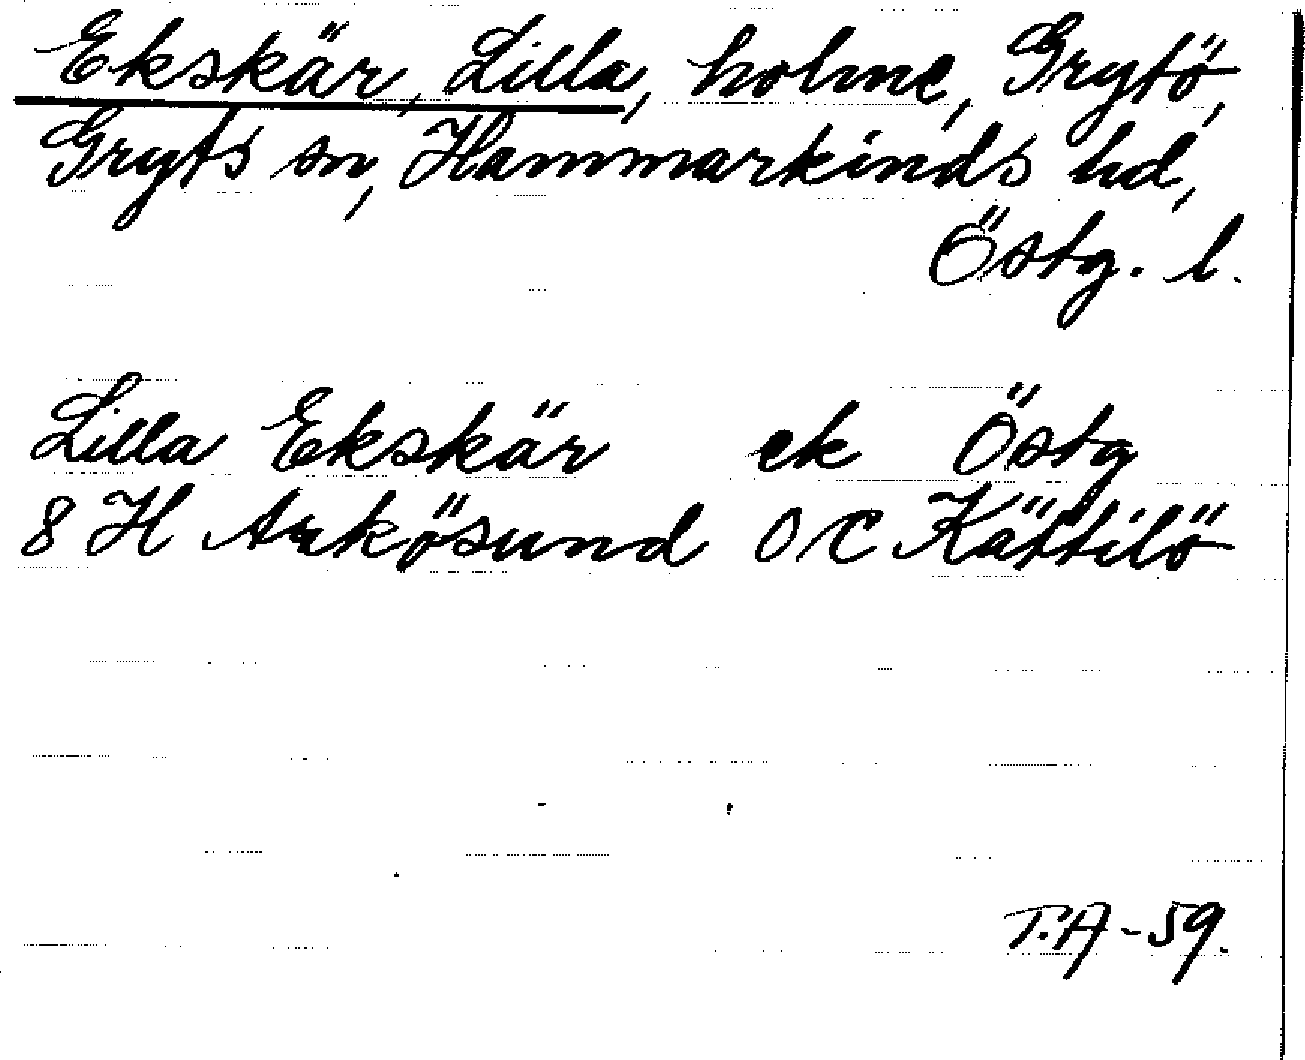 Ekskär, Lilla, holme, Grytö,
Gryts sn, Hammarkinds hd,
Östg. l.
Lilla Ekskär ek Östg
8 H Arkösund 0 C Kättilö
T.A-59.